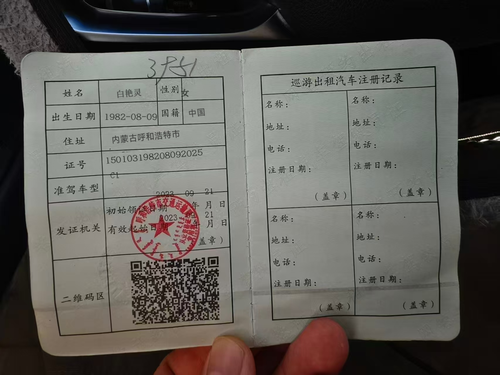 姓名 白艳灵 性别 女
出生日期 1982-08-09 国籍 中国
住址 内蒙古呼和浩特市
证号 150103198208092025
准驾车型 C1
发证机关 初始领证日期 2023 09 21 月 日
有效起始日 2023 21 月 日
(盖章)
二维码区
巡游出租汽车注册记录
名称: 名称:
地址: 地址:
电话: 电话:
注册日期: 注册日期:
(盖章) (盖章)
名称: 名称:
地址: 地址:
电话: 电话:
注册日期: 注册日期:
(盖章) (盖章)